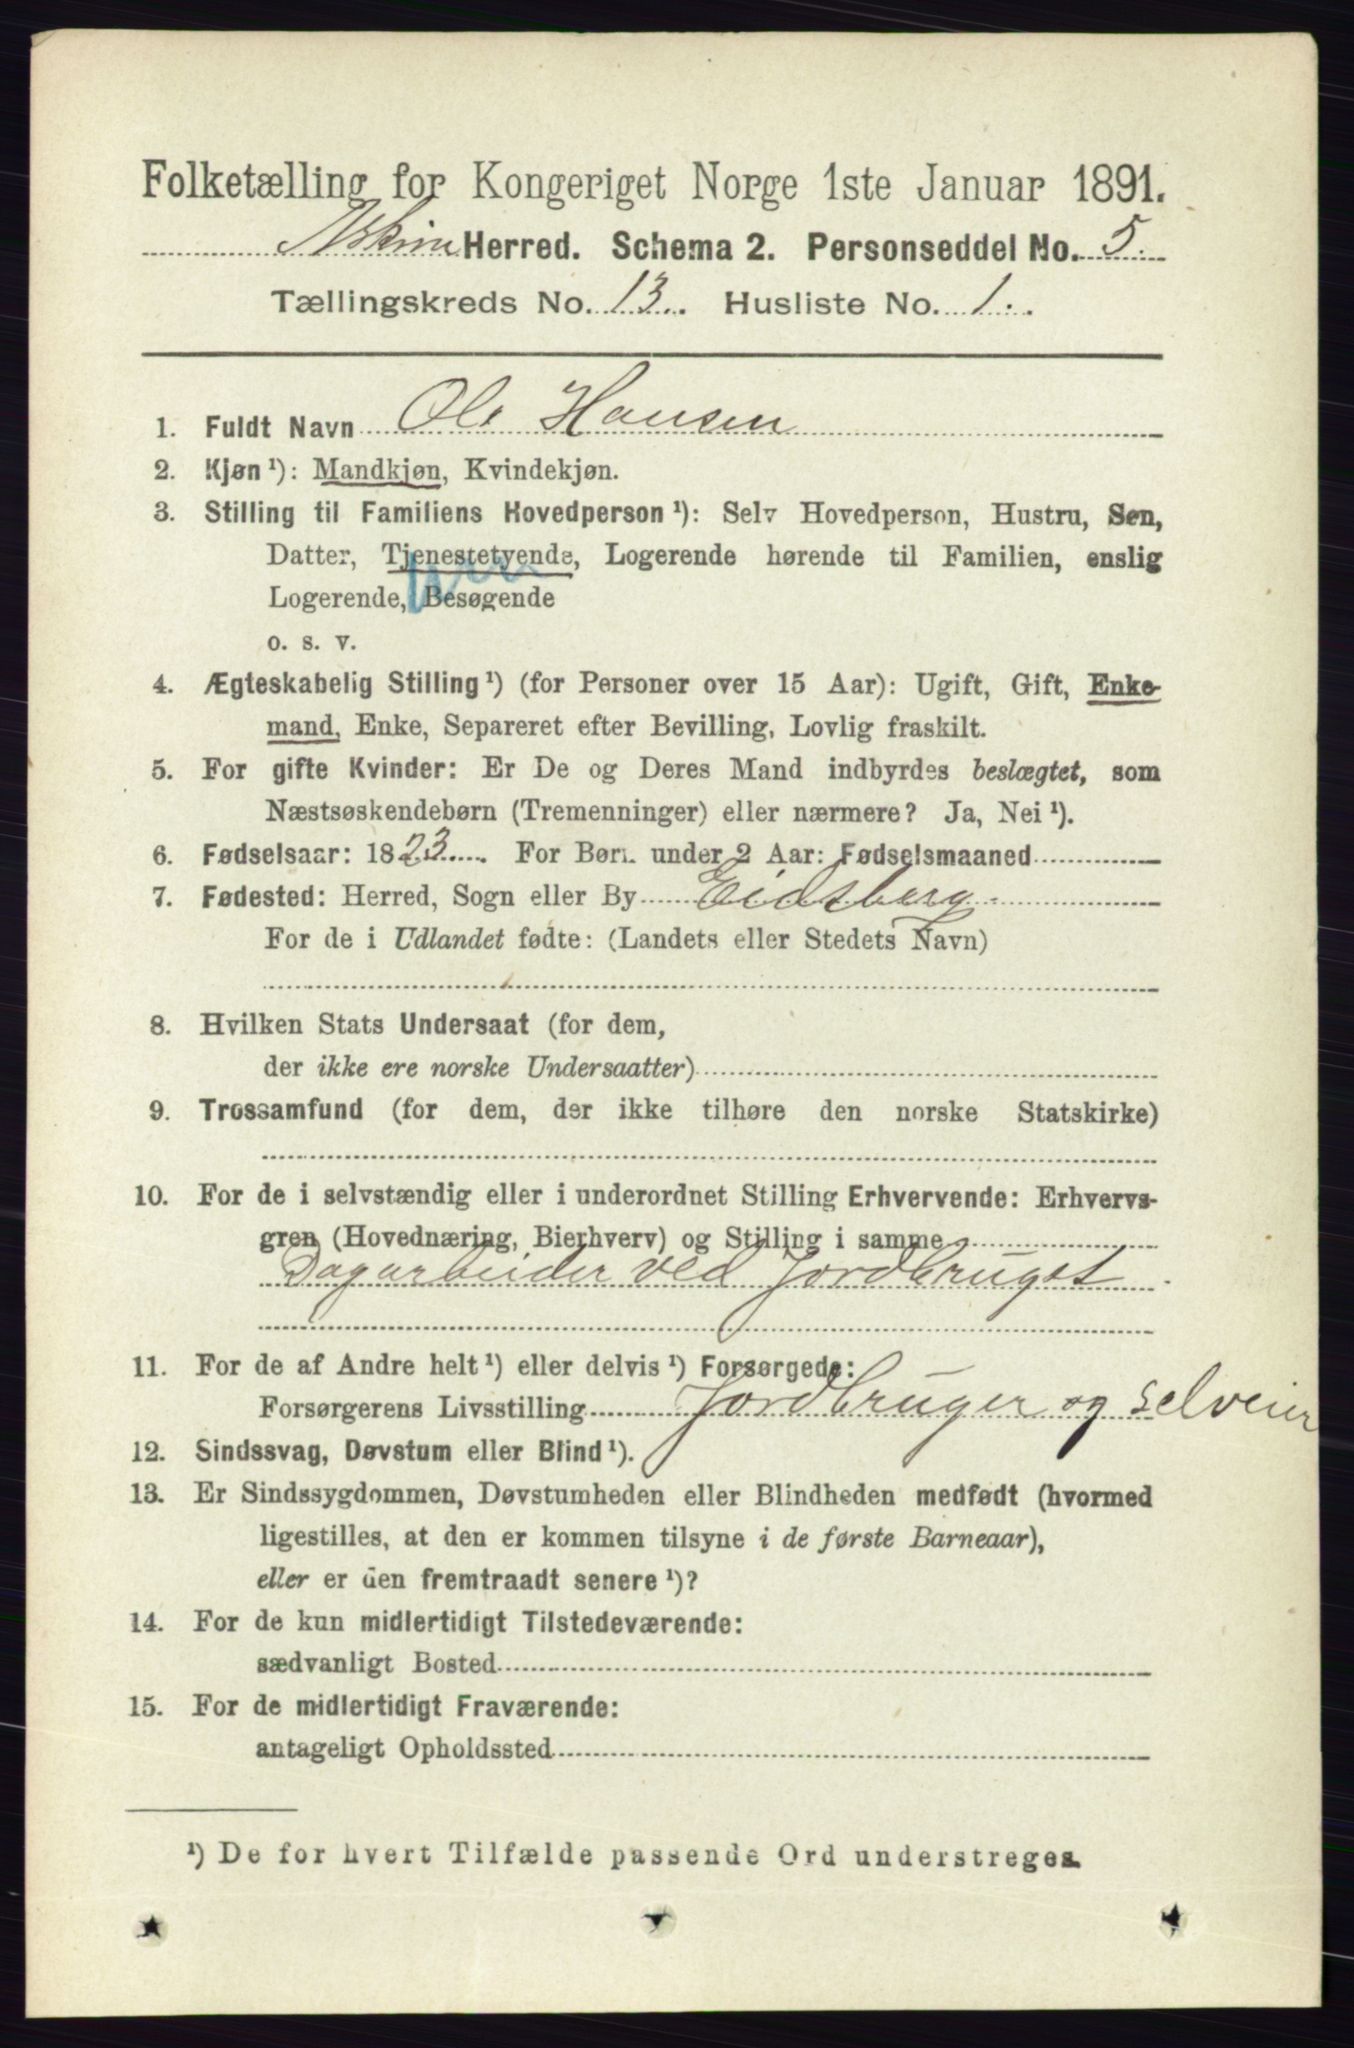 Folketælling for Kongeriget Norge 1ste Januar 1891.
Askim Herred. Schema 2. Personseddel No. 5.
Tællingskreds No. 13. Husliste No. 1.
1. Fuldt Navn Ole Hansen
2. Kjøn ¹): Mandkjøn, Kvindekjøn.
3. Stilling til Familiens Hovedperson ¹): Selv Hovedperson, Hustru, Søn,
Datter, Tjenestetyende, Logerende hørende til Familien, enslig
Logerende, Besøgende
o. s. v.
4. Ægteskabelig Stilling ¹) (for Personer over 15 Aar): Ugift, Gift, Enke-
mand, Enke, Separeret efter Bevilling, Lovlig fraskilt.
5. For gifte Kvinder: Er De og Deres Mand indbyrdes beslægtet, som
Næstsøskendebørn (Tremenninger) eller nærmere? Ja, Nei ¹).
6. Fødselsaar: 1823. For Børn under 2 Aar: Fødselsmaaned
7. Fødested: Herred, Sogn eller By Eidsberg.
For de i Udlandet fødte: (Landets eller Stedets Navn)
8. Hvilken Stats Undersaat (for dem,
der ikke ere norske Undersaatter)
9. Trossamfund (for dem, der ikke tilhøre den norske Statskirke)
10. For de i selvstændig eller i underordnet Stilling Erhvervende: Erhvervs-
gren (Hovednæring, Bierhverv) og Stilling i samme
Dagarbeider ved Jordbruget
11. For de af Andre helt ¹) eller delvis ¹) Forsørgede:
Forsørgerens Livsstilling Jordbruger og selveier
12. Sindssvag, Døvstum eller Blind ¹).
13. Er Sindssygdommen, Døvstumheden eller Blindheden medfødt (hvormed
ligestilles, at den er kommen tilsyne i de første Barneaar),
eller er den fremtraadt senere ¹)?
14. For de kun midlertidigt Tilstedeværende:
sædvanligt Bosted
15. For de midlertidigt Fraværende:
antageligt Opholdssted
¹) De for hvert Tilfælde passende Ord understreges.